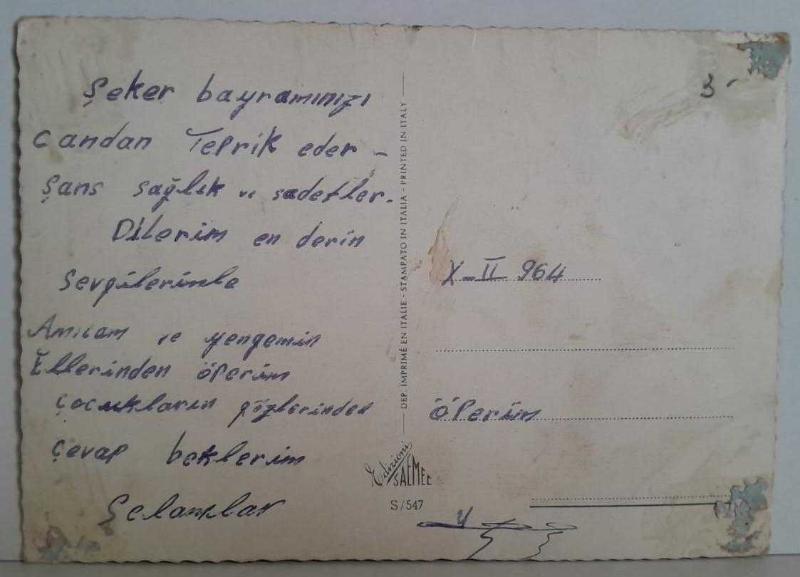 Şeker bayramınızı
candan Teprik eder -
Şans sağlık ve sadetler.
Dilerim en derin
Sevgilerimle
Amıcam ve yengemin
Ellerinden öperim
Çocukların gözlerinden
Çevap beklerim
Şelamlar
DEP. IMPRIMÉ EN ITALIE - STAMPATO IN ITALIA - PRINTED IN ITALY
Edizioni
SAEMEC
S/547
3-
X-II 964
öperim